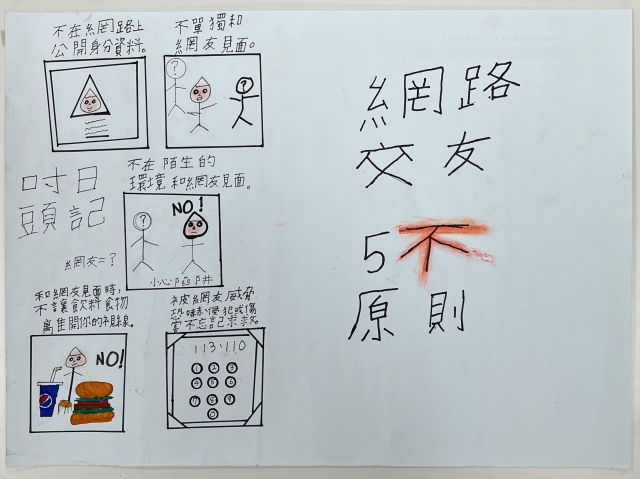 不在網路上
公開身分資料。
不單獨和
網友見面。
?
?
網路
交友
5不
原則
叮日
頭記
不在陌生的
環境和網友見面。
?
NO!
小心陷阱
網友=?
和網友見面時,
不讓飲料食物
離開你的視線。
NO!
被網友威脅
恐嚇侵犯或傷
害不忘記求救
113.110